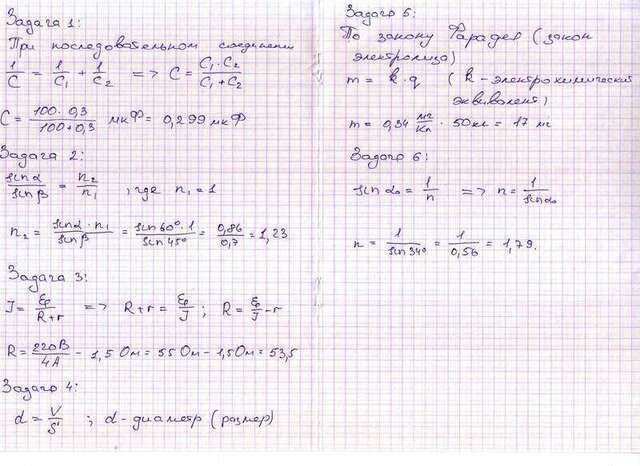 Задача 1:
При последовательном соединении
1/C = 1/C₁ + 1/C₂ => C = C₁·C₂/C₁+C₂
C = 100·0,3/100+0,3 мкФ = 0,299 мкФ
Задача 2:
sinα/sinβ = n₂/n₁, где n₁ = 1
n₂ = sinα·n₁/sinβ = sin60°·1/sin45° = 0,86/0,7 = 1,23
Задача 3:
J = ℰ/R+r => R+r = ℰ/J; R = ℰ/J - r
R = 220В/4А - 1,5 Ом = 55 Ом - 1,5 Ом = 53,5
Задача 4:
d = V/S; d - диаметр (размер)
Задача 5:
По закону Фарадея (закон
электролиза)
m = k·q (k - электрохимический
эквивалент)
m = 0,34 мг/Кл · 50кл = 17 мг
Задача 6:
sinα₀ = 1/n => n = 1/sinα₀
n = 1/sin34° = 1/0,56 = 1,79.